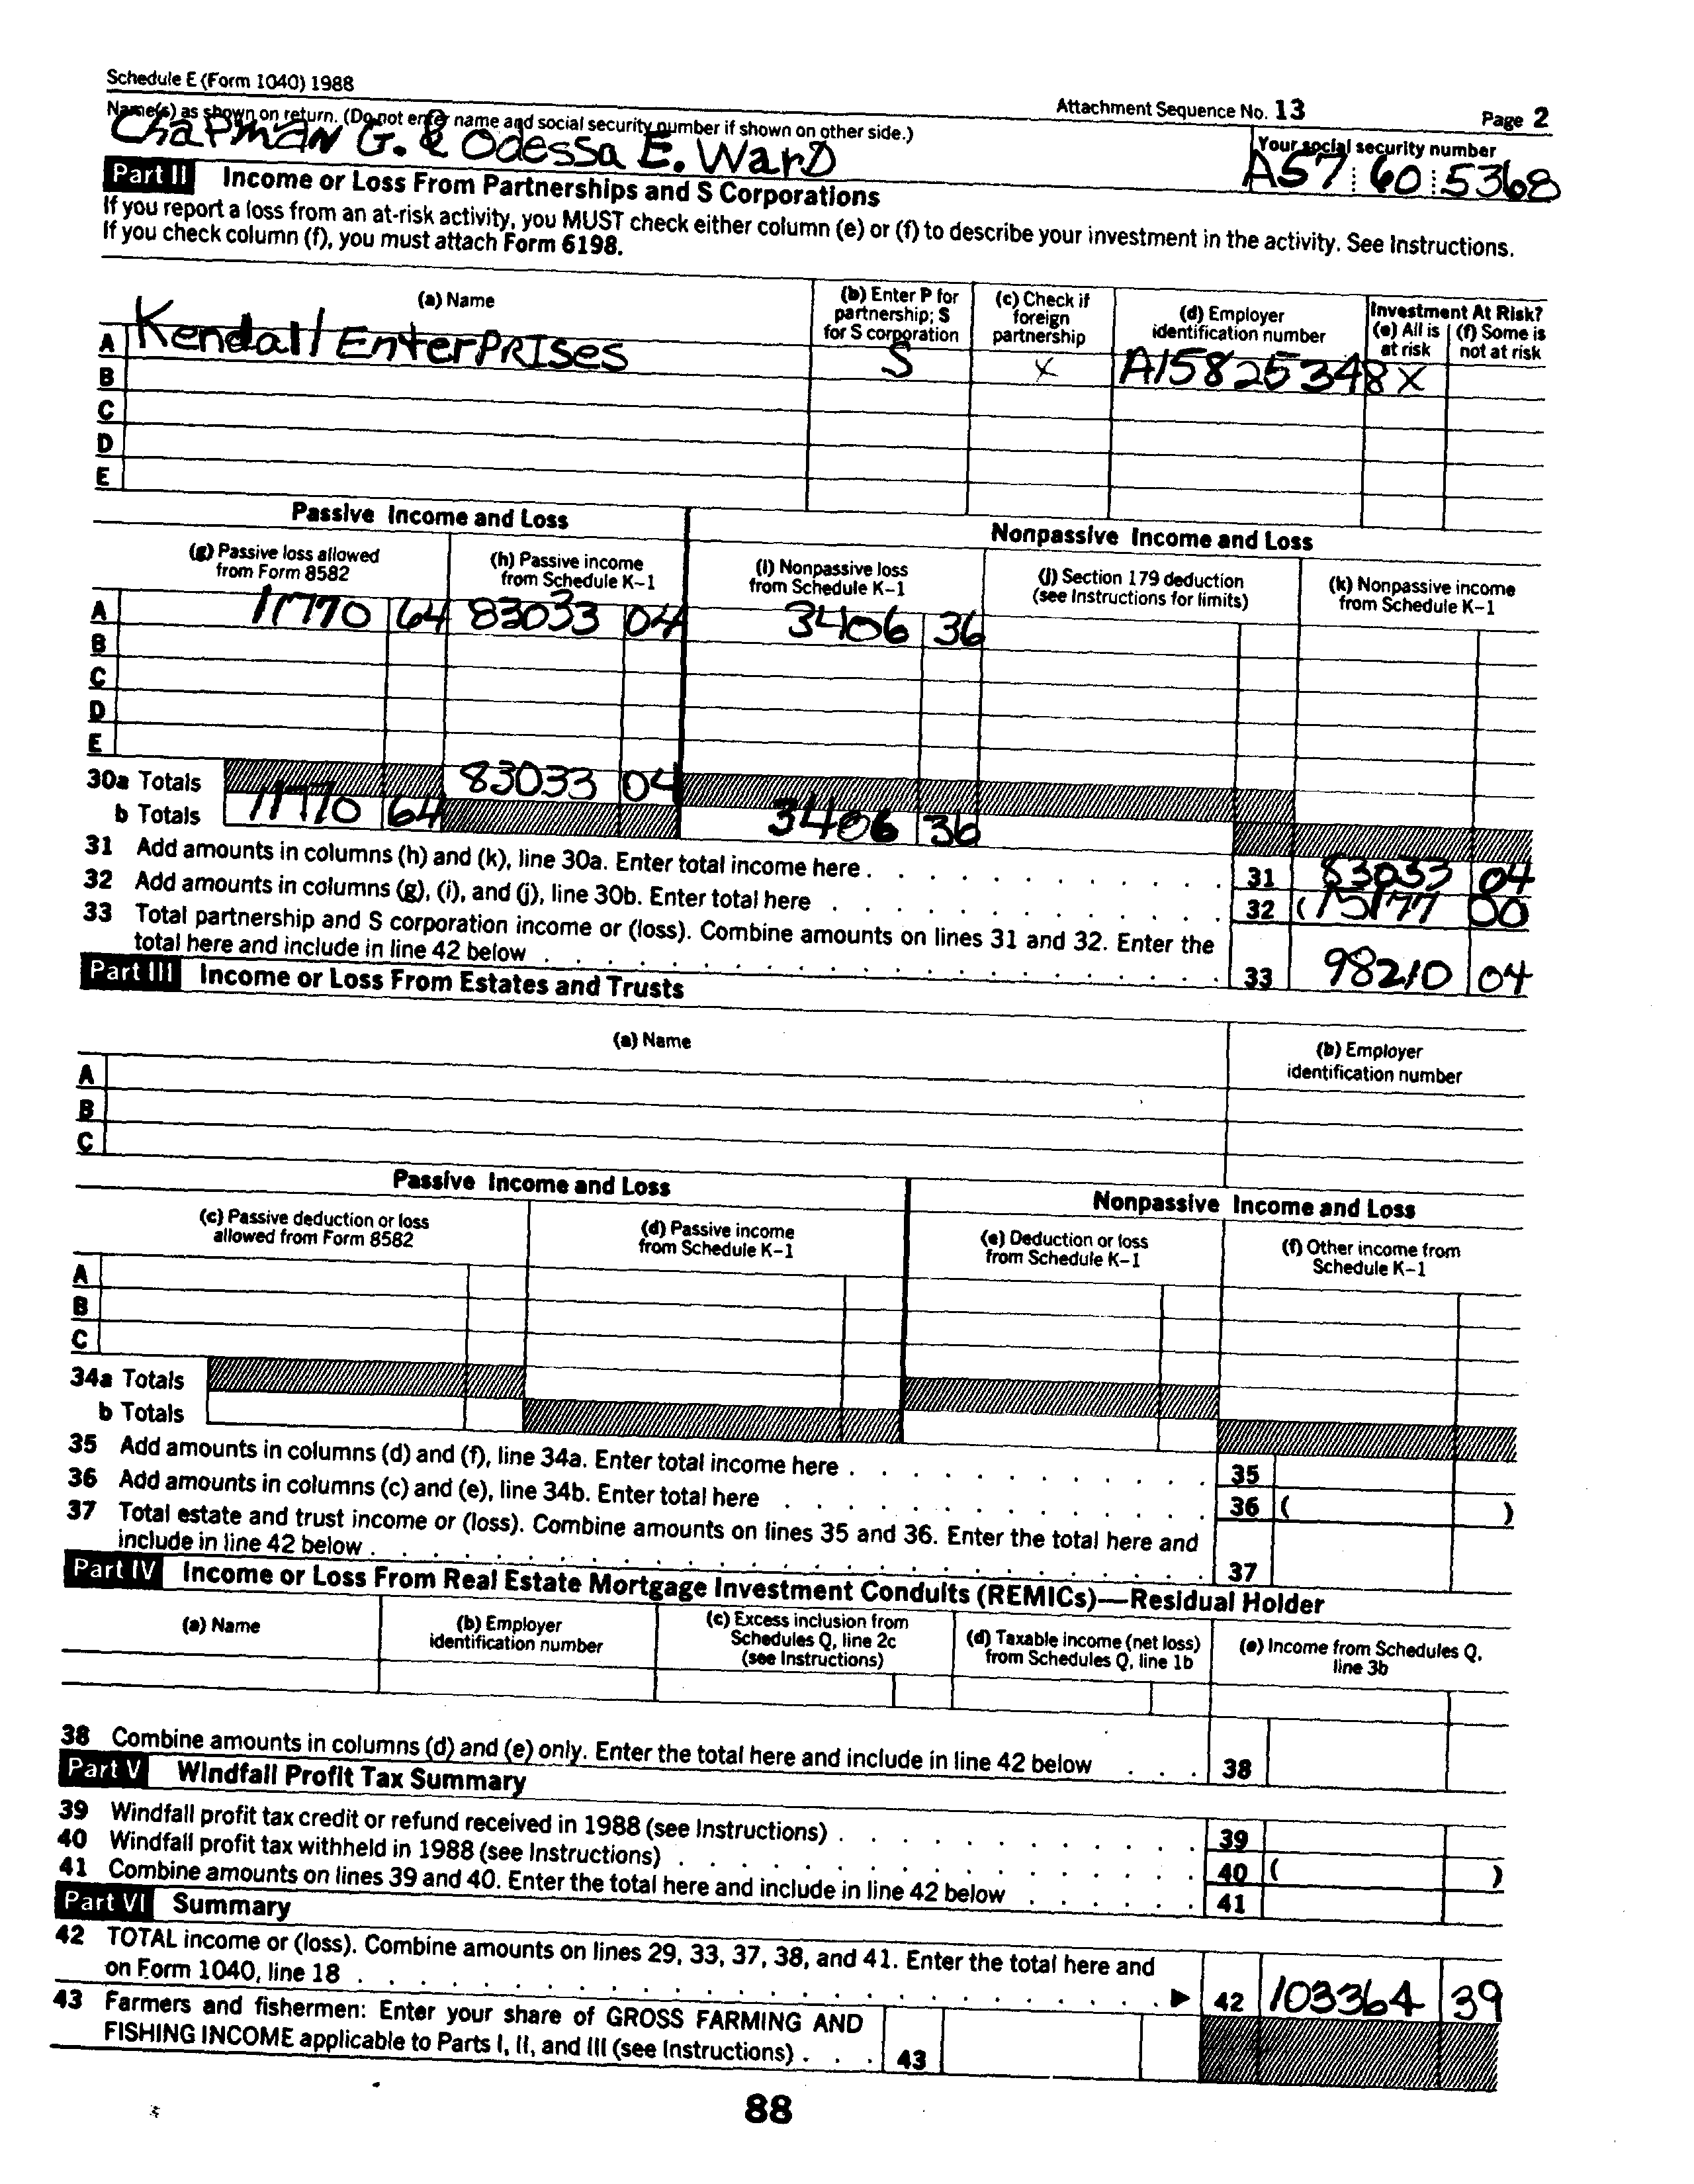 Schedule E (Form 1040) 1988
Attachment Sequence No. 13 Page 2
Name(s) as shown on return. (Do not enter name and social security number if shown on other side.)
Your social security number
Chapman G. & Odessa E. Ward
A57 60 5368
Part II Income or Loss From Partnerships and S Corporations
If you report a loss from an at-risk activity, you MUST check either column (e) or (f) to describe your investment in the activity. See Instructions.
If you check column (f), you must attach Form 6198.
(a) Name
(b) Enter P for partnership; S for S corporation
(c) Check if foreign partnership
(d) Employer identification number
Investment At Risk?
(e) All is at risk
(f) Some is not at risk
A Kendall EnterPRISes S X A15825348 X
B
C
D
E
Passive Income and Loss
Nonpassive Income and Loss
(g) Passive loss allowed from Form 8582
(h) Passive income from Schedule K-1
(i) Nonpassive loss from Schedule K-1
(j) Section 179 deduction (see Instructions for limits)
(k) Nonpassive income from Schedule K-1
A 11770 64 83033 04 3406 36
B
C
D
E
30a Totals 83033 04
b Totals 11770 64 3406 36
31 Add amounts in columns (h) and (k), line 30a. Enter total income here . 31 83033 04
32 Add amounts in columns (g), (i), and (j), line 30b. Enter total here 32 (15177 00
33 Total partnership and S corporation income or (loss). Combine amounts on lines 31 and 32. Enter the
total here and include in line 42 below 33 98210 04
Part III Income or Loss From Estates and Trusts
(a) Name
(b) Employer identification number
A
B
C
Passive Income and Loss
Nonpassive Income and Loss
(c) Passive deduction or loss allowed from Form 8582
(d) Passive income from Schedule K-1
(e) Deduction or loss from Schedule K-1
(f) Other income from Schedule K-1
A
B
C
34a Totals
b Totals
35 Add amounts in columns (d) and (f), line 34a. Enter total income here . 35
36 Add amounts in columns (c) and (e), line 34b. Enter total here 36 ( )
37 Total estate and trust income or (loss). Combine amounts on lines 35 and 36. Enter the total here and
include in line 42 below . 37
Part IV Income or Loss From Real Estate Mortgage Investment Conduits (REMICs)—Residual Holder
(a) Name
(b) Employer identification number
(c) Excess inclusion from Schedules Q, line 2c (see Instructions)
(d) Taxable income (net loss) from Schedules Q, line 1b
(e) Income from Schedules Q, line 3b
38 Combine amounts in columns (d) and (e) only. Enter the total here and include in line 42 below 38
Part V Windfall Profit Tax Summary
39 Windfall profit tax credit or refund received in 1988 (see Instructions) . 39
40 Windfall profit tax withheld in 1988 (see Instructions) . 40 ( )
41 Combine amounts on lines 39 and 40. Enter the total here and include in line 42 below 41
Part VI Summary
42 TOTAL income or (loss). Combine amounts on lines 29, 33, 37, 38, and 41. Enter the total here and
on Form 1040, line 18 . ▶ 42 103364 39
43 Farmers and fishermen: Enter your share of GROSS FARMING AND
FISHING INCOME applicable to Parts I, II, and III (see Instructions) . 43
88